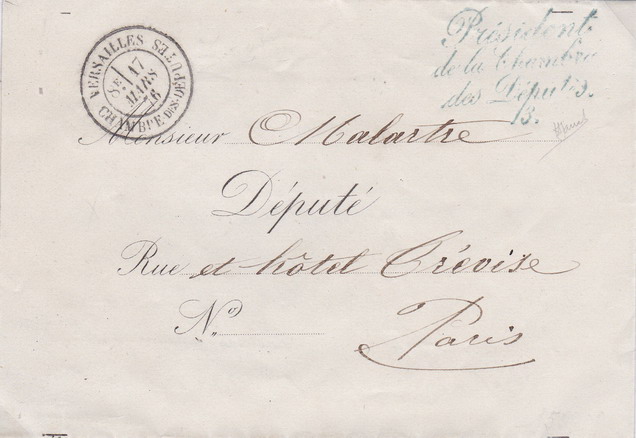 VERSAILLES CHAMBRE DES-DEPUTES
17
MARS
76
Président
de la Chambre
des Députés.
B.
Monsieur Malartre
Député
Rue et hôtel Trévise
N°
Paris